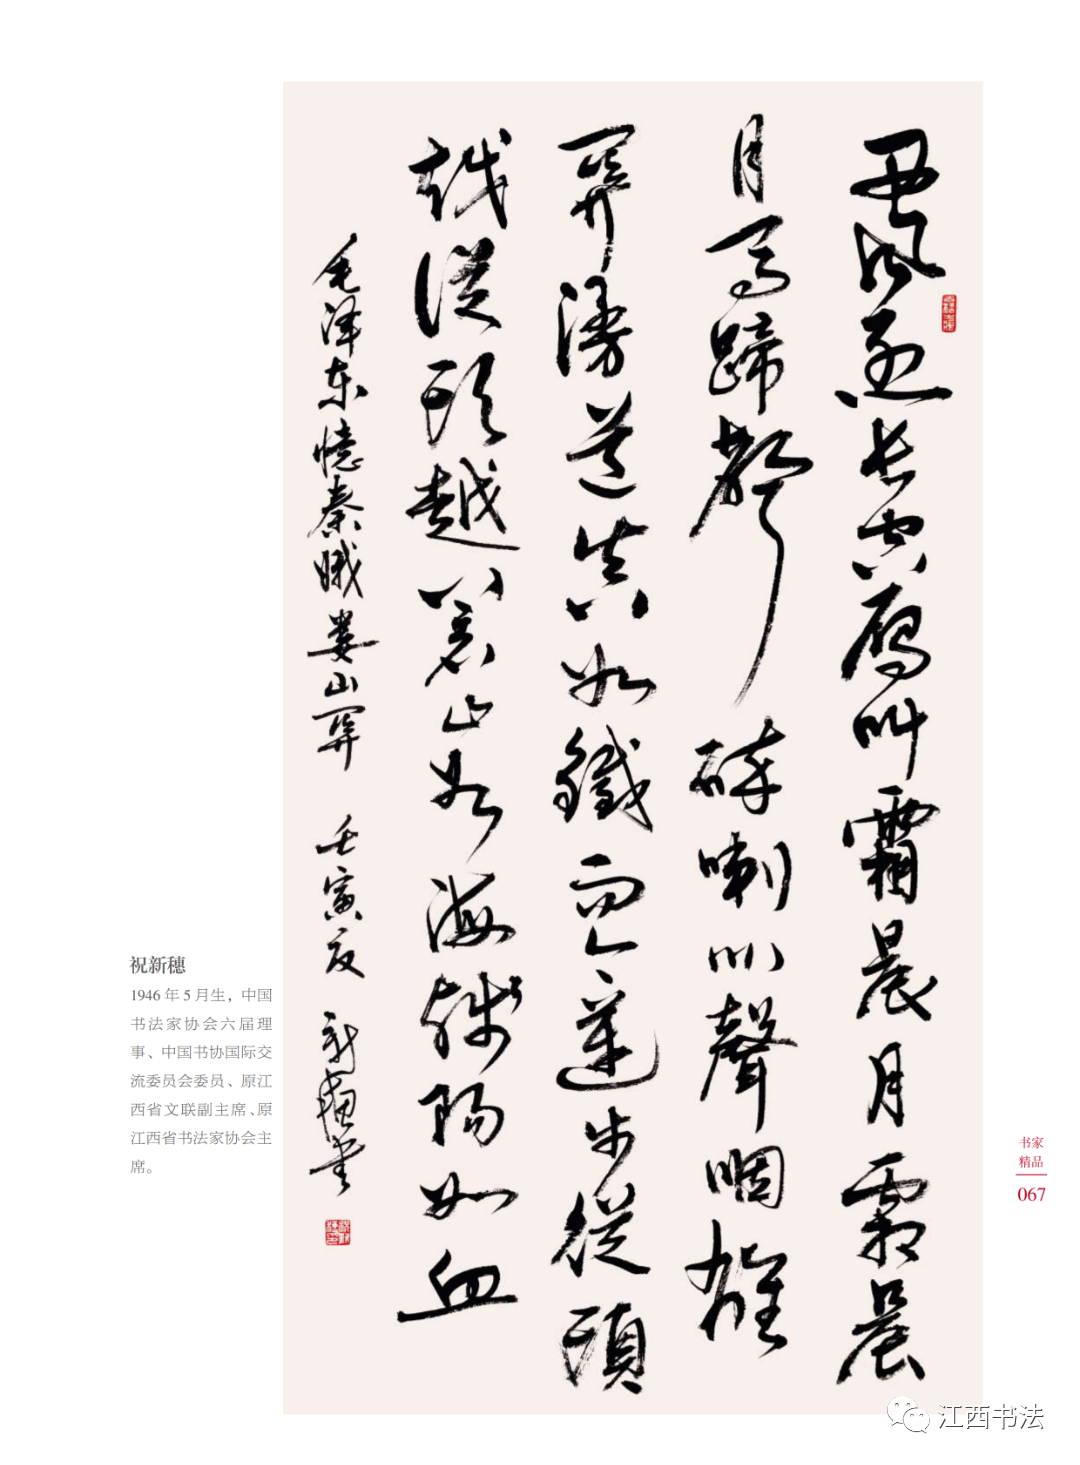 西風烈长空雁叫霜晨月霜晨
月马蹄声碎喇叭聲咽雄
关漫道真如鐵而今邁步從頭
越從头越蒼山如海殘陽如血
毛泽东憶秦娥娄山关 壬寅夏 新穗書
祝新穗
1946 年 5 月生，中国
书法家协会六届理
事、中国书协国际交
流委员会委员、原江
西省文联副主席、原
江西省书法家协会主
席。
书家
精品
067
江西书法